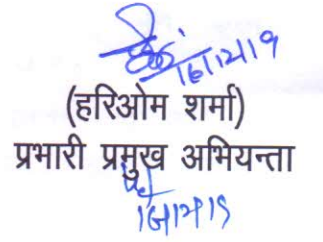 16/12/19
(हरिओम शर्मा)
प्रभारी प्रमुख अभियन्ता